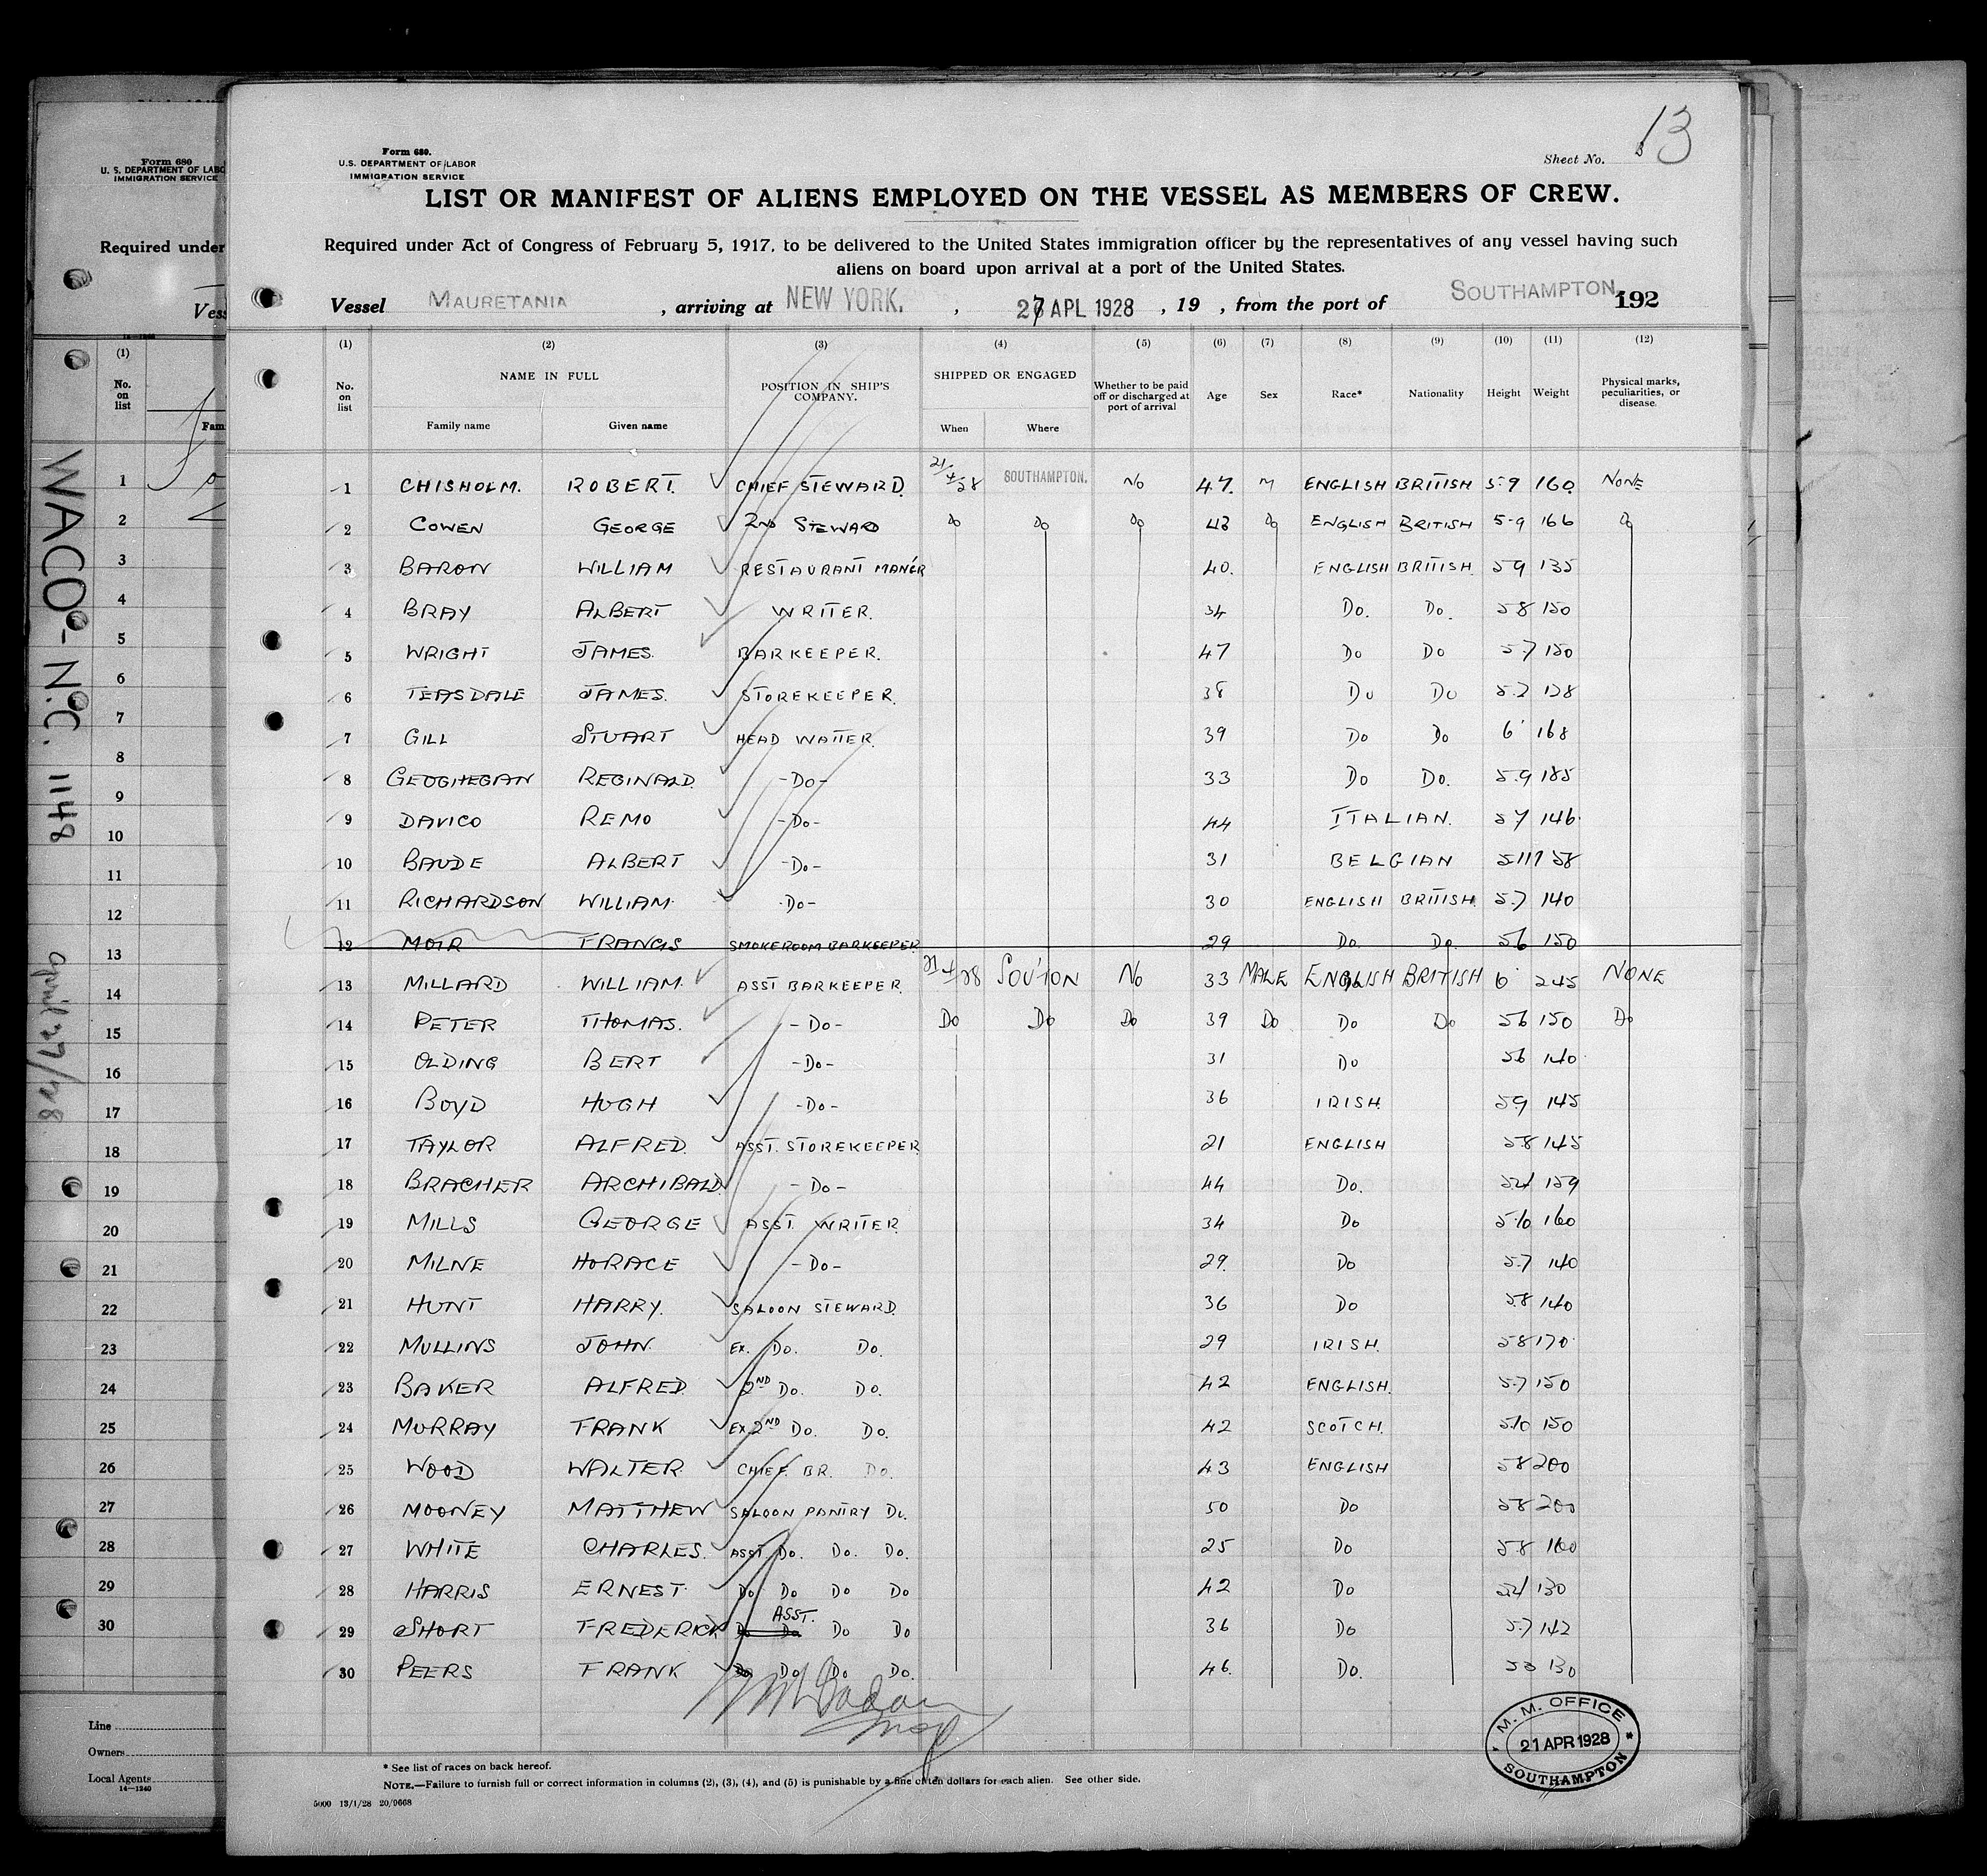 13
Form 680.
Sheet No.
U.S. DEPARTMENT OF LABOR
IMMIGRATION SERVICE
LIST OR MANIFEST OF ALIENS EMPLOYED ON THE VESSEL AS MEMBERS OF CREW.
Required under Act of Congress of February 5, 1917, to be delivered to the United States immigration officer by the representatives of any vessel having such
aliens on board upon arrival at a port of the United States.
Vessel MAURETANIA , arriving at NEW YORK. , 27 APL 1928 , 19 , from the port of SOUTHAMPTON. 192
(1) (2) (3) (4) (5) (6) (7) (8) (9) (10) (11) (12)
No. on list NAME IN FULL POSITION IN SHIP'S COMPANY. SHIPPED OR ENGAGED Whether to be paid off or discharged at port of arrival Age Sex Race* Nationality Height Weight Physical marks, peculiarities, or disease.
Family name Given name When Where
1 CHISHOLM. ROBERT. CHIEF STEWARD. 21/4/28 SOUTHAMPTON. No 47. M ENGLISH BRITISH 5-9 160. NONE
2 COWEN GEORGE 2ND STEWARD Do Do Do 43 Do ENGLISH BRITISH 5-9 166 Do
3 BARON WILLIAM RESTAURANT MAN'GR 40. ENGLISH BRITISH. 59 135
4 BRAY ALBERT WRITER. 34 Do. Do. 58 150
5 WRIGHT JAMES. BARKEEPER. 47 Do Do 5-7 150
6 TEASDALE JAMES. STOREKEEPER. 38 Do Do
7 GILL STUART HEAD WAITER. 39 Do Do 6' 168
8 GEOGHEGAN REGINALD. -Do- 33 Do Do. 5.9 185
9 DAVICO REMO -Do- 44 ITALIAN. 57 146.
10 BAUDE ALBERT -Do- 31 BELGIAN 5111 58
11 RICHARDSON WILLIAM. -Do- 30 ENGLISH BRITISH. 5.7 140
12 MOIR FRANCIS SMOKEROOM BARKEEPER 29 Do. Do. 56 150
13 MILLARD WILLIAM. ASST BARKEEPER. 21/4/28 SOU'TON No 33 MALE ENGLISH BRITISH 6' 245 NONE
14 PETER THOMAS. -Do- Do Do Do 39 Do Do Do 56 150 Do
15 OLDING BERT -Do- 31 Do 56 140.
16 BOYD HUGH -Do- 36 IRISH. 59 145
17 TAYLOR ALFRED. ASST. STOREKEEPER 21 ENGLISH 58 145
18 BRACHER ARCHIBALD. -Do- 44 Do. 54 159
19 MILLS GEORGE ASST. WRITER 34 Do 5-10 160
20 MILNE HORACE -Do- 29. Do 5.7 140
21 HUNT HARRY. SALOON STEWARD. 36 Do 58 140
22 MULLINS JOHN. EX. Do. Do. 29 IRISH. 58 170.
23 BAKER ALFRED. 2ND Do. Do. 42 ENGLISH. 5.7 150
24 MURRAY FRANK EX 2ND Do. Do. 42 SCOTCH. 5.10 150
25 WOOD WALTER. CHIEF. BR. Do. 43 ENGLISH 58 200
26 MOONEY MATTHEW SALOON PANTRY Do. 50 Do 58 200
27 WHITE CHARLES. ASST. Do. Do. Do. 25 Do 58 160
28 HARRIS ERNEST. Do Do Do Do 42 Do 54 130
29 SHORT FREDERICK Do Do ASST. Do Do 36 Do 5.7 142
30 PEERS FRANK Do Do Do Do. 46. Do. 130
M.M. OFFICE
21 APR 1928
SOUTHAMPTON
* See list of races on back hereof.
NOTE.—Failure to furnish full or correct information in columns (2), (3), (4), and (5) is punishable by a fine of ten dollars for each alien. See other side.
5000 13/1/28 20/9668
Form 680
U. S. DEPARTMENT OF LABO
IMMIGRATION SERVICE
Required under
Vess
(1)
No. on list
Fam
1
2
3
4
5
6
7
8
9
10
11
12
13
14
15
16
17
18
19
20
21
22
23
24
25
26
27
28
29
30
Line
Owners
Local Agents
14—1240
WACO - N.C. 1148
April 27/28